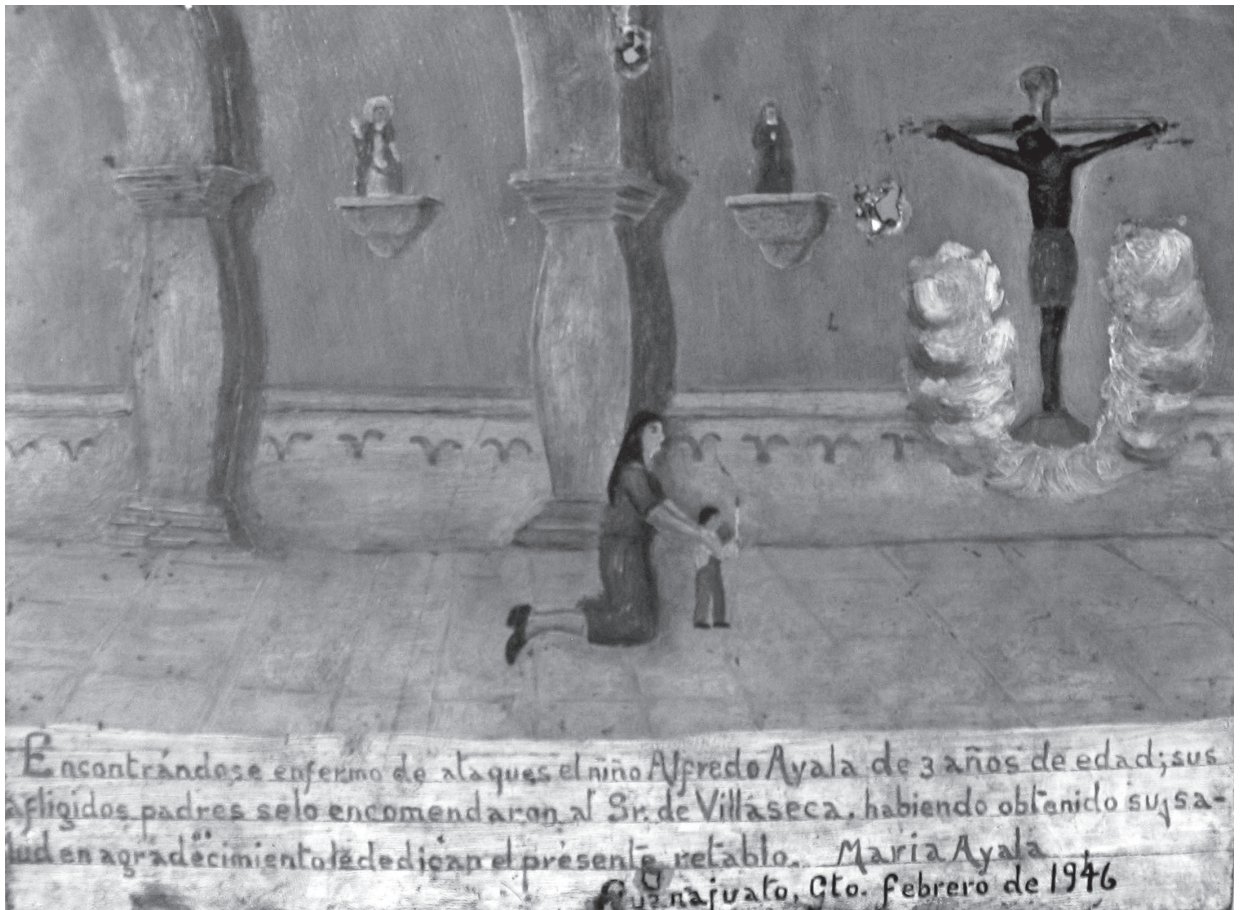 Encontrándose enfermo de ataques el niño Alfredo Ayala de 3 años de edad; sus
afligidos padres selo encomendaron al Sr. de Villaseca, habiendo obtenido su sa-
lud en agradecimiento le dedican el presente retablo. Maria Ayala
Guanajuato, Gto. febrero de 1946